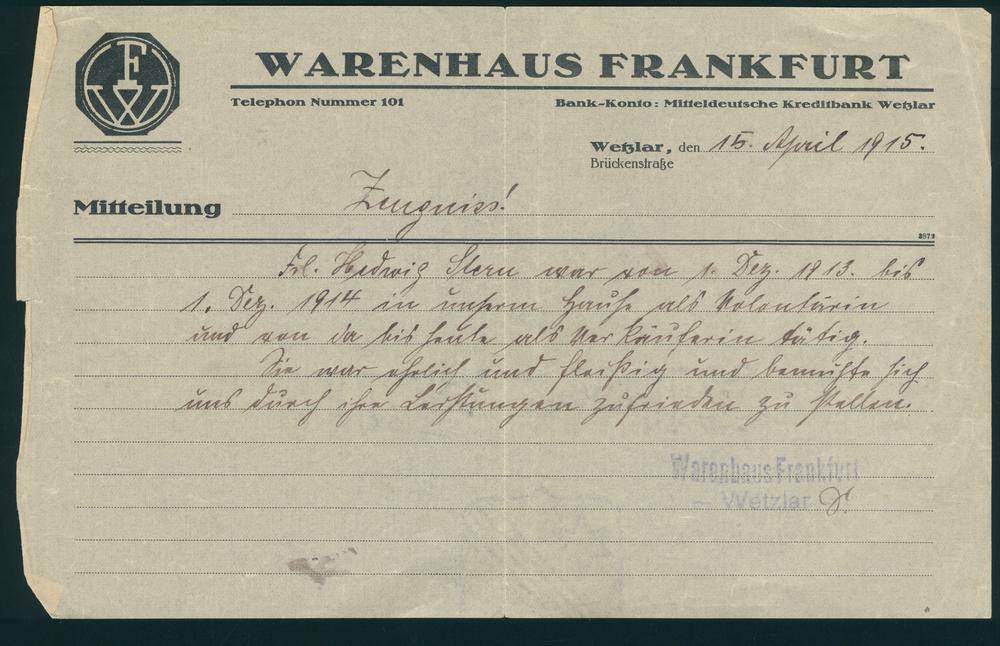 FW
WARENHAUS FRANKFURT
Telephon Nummer 101
Bank-Konto: Mitteldeutsche Kreditbank Wetzlar
Wetzlar, den 15. April 1915.
Brückenstraße
Mitteilung Zeugniss!
3872
Frl. Hedwig Stern war von 1. Dez. 1913. bis
1. Dez. 1914 in unserm Hause als Volontärin
und von da bis heute als Verkäuferin tätig.
Sie war ehrlich und fleißig und bemühte sich
uns durch ihre Leistungen zufrieden zu stellen.
Warenhaus Frankfurt
— Wetzlar